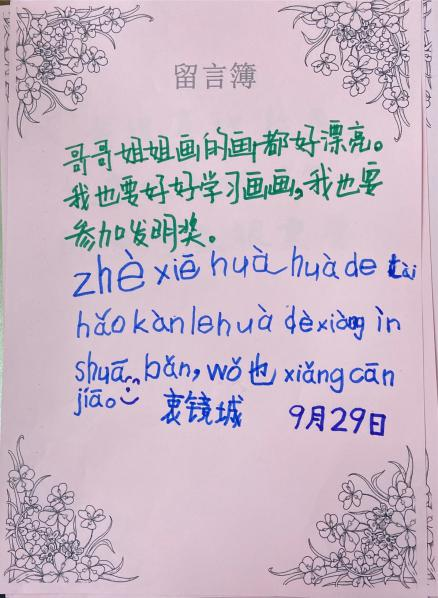 留言簿
哥哥姐姐画的画都好漂亮。
我也要好好学习画画,我也要
参加发明奖。
zhè xiē huà huà de tài
hǎo kàn le huà dè xiàng ìn
shuā bǎn, wǒ 也 xiǎng cān
jiā。
衷镜城 9月29日